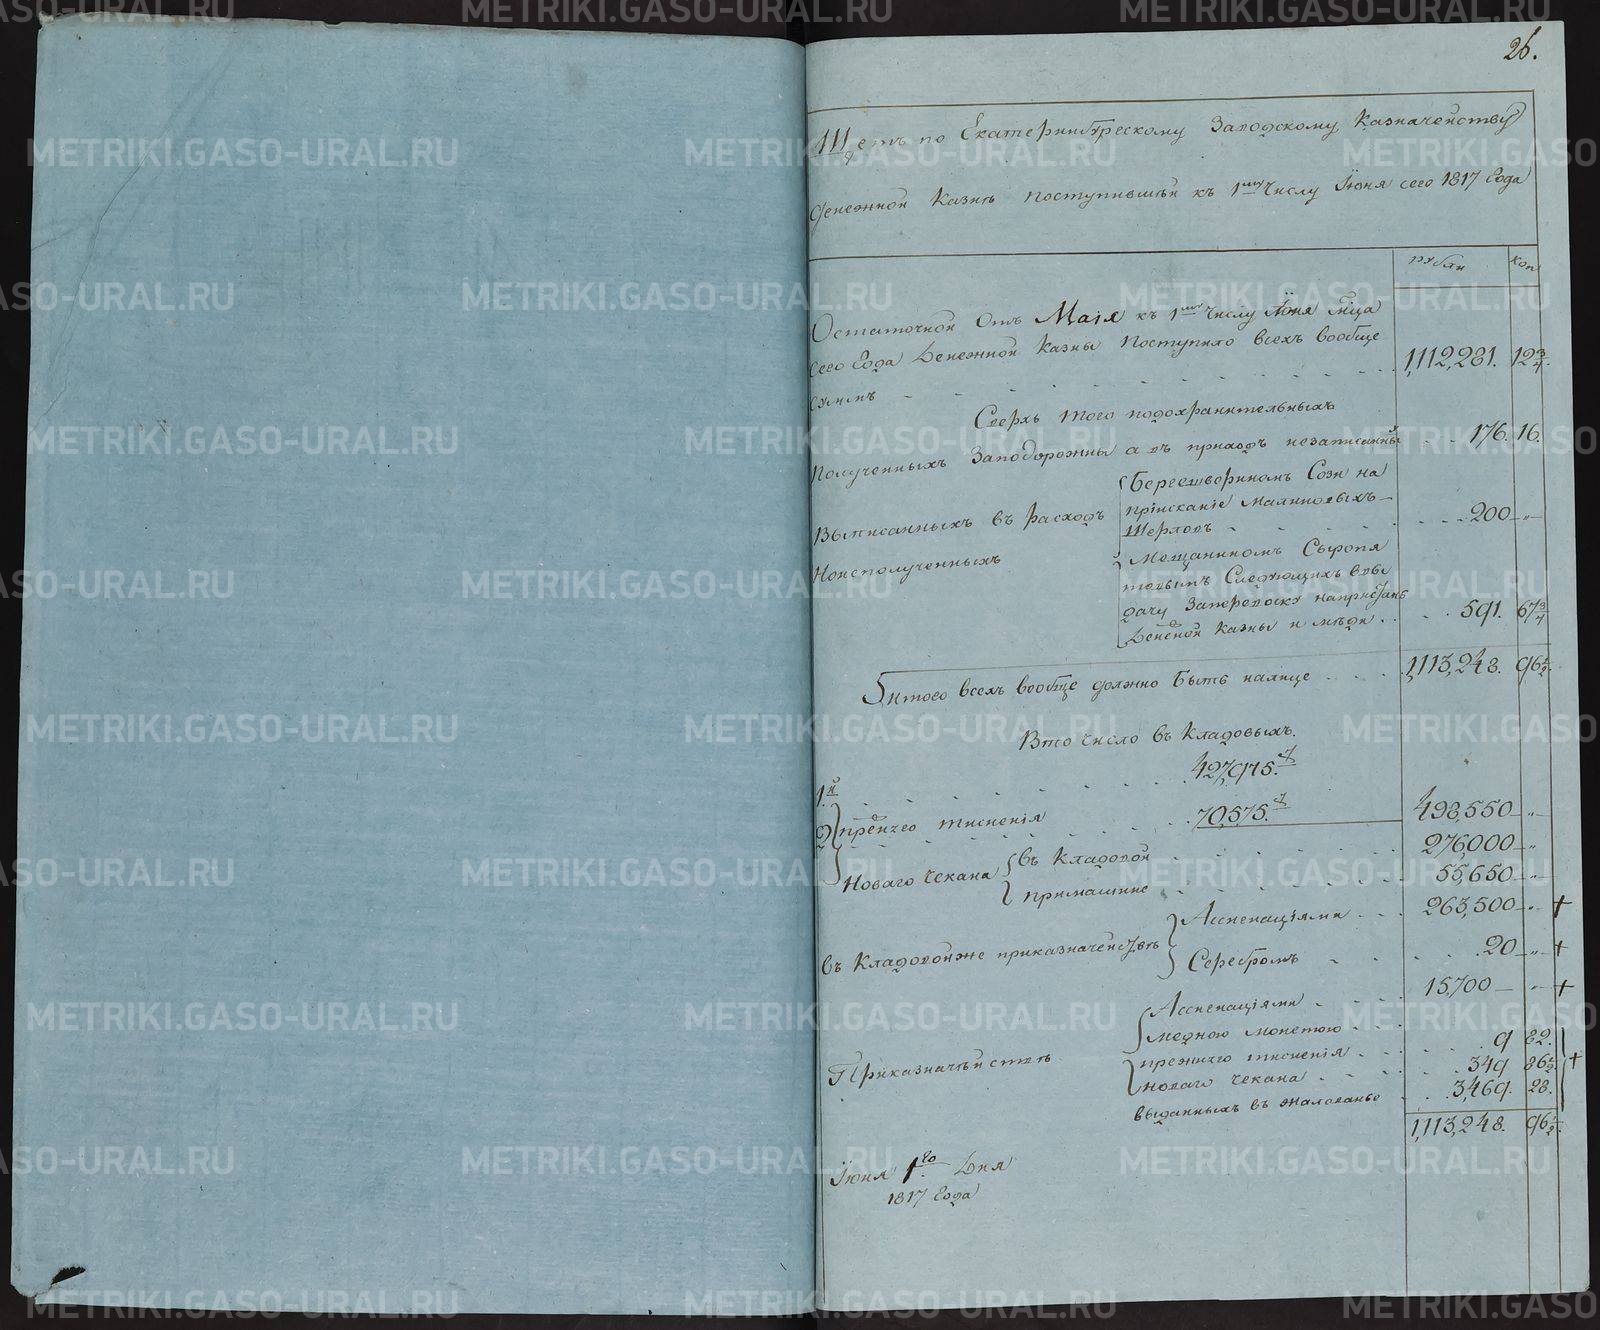 26.
Щетъ по Екатеринбургскому Заводскому Казначейству
Денежной Казнѣ поступившей къ 1му Числу Июня сего 1817 Года
рубли коп
Остаточной отъ Маія къ 1му Числу Июня мца
сего Года Денежной Казны поступило всехъ вообще
сумъ 1,112,281. 12 3/4.
Сверхъ того подохранительныхъ
Полученныхъ Заподорожны а въ приходъ незаписанны 176. 16.
Выписанныхъ въ расходъ
Нонеполученныхъ
Сози на
прiисканiе Малиновыхъ
Шерловъ 200 — „ —
Мещаниномъ
Следующихъ въвы
дачу Заперевоску напристань
Денежной Казны и меди 591. 67 3/4
Итого всехъ вообще должно быть налице 1,113,248. 96 1/2.
Вто число въ Кладовыхъ.
1й 427,975.
2й прежнего тиснения 70,575. 498,550 — „ —
Новаго Чекана въ Кладовой 276,000 — „
примашине 55,650 — „ —
въ Кладовойже приказначействе Ассигнацiями 263,500 — „ — +
Серебромъ 20 — „ — +
Приказначействе Ассигнацiями 15,700 — „ — +
медною монетою
прежнего тиснения 9 82.
новаго Чекана 349 86 1/2 +
выданныхъ въ жалованье 3,469. 28.
1,113,248. 96 1/2.
Июня 1го Дня
1817 Года
METRIKI.GASO-URAL.RU